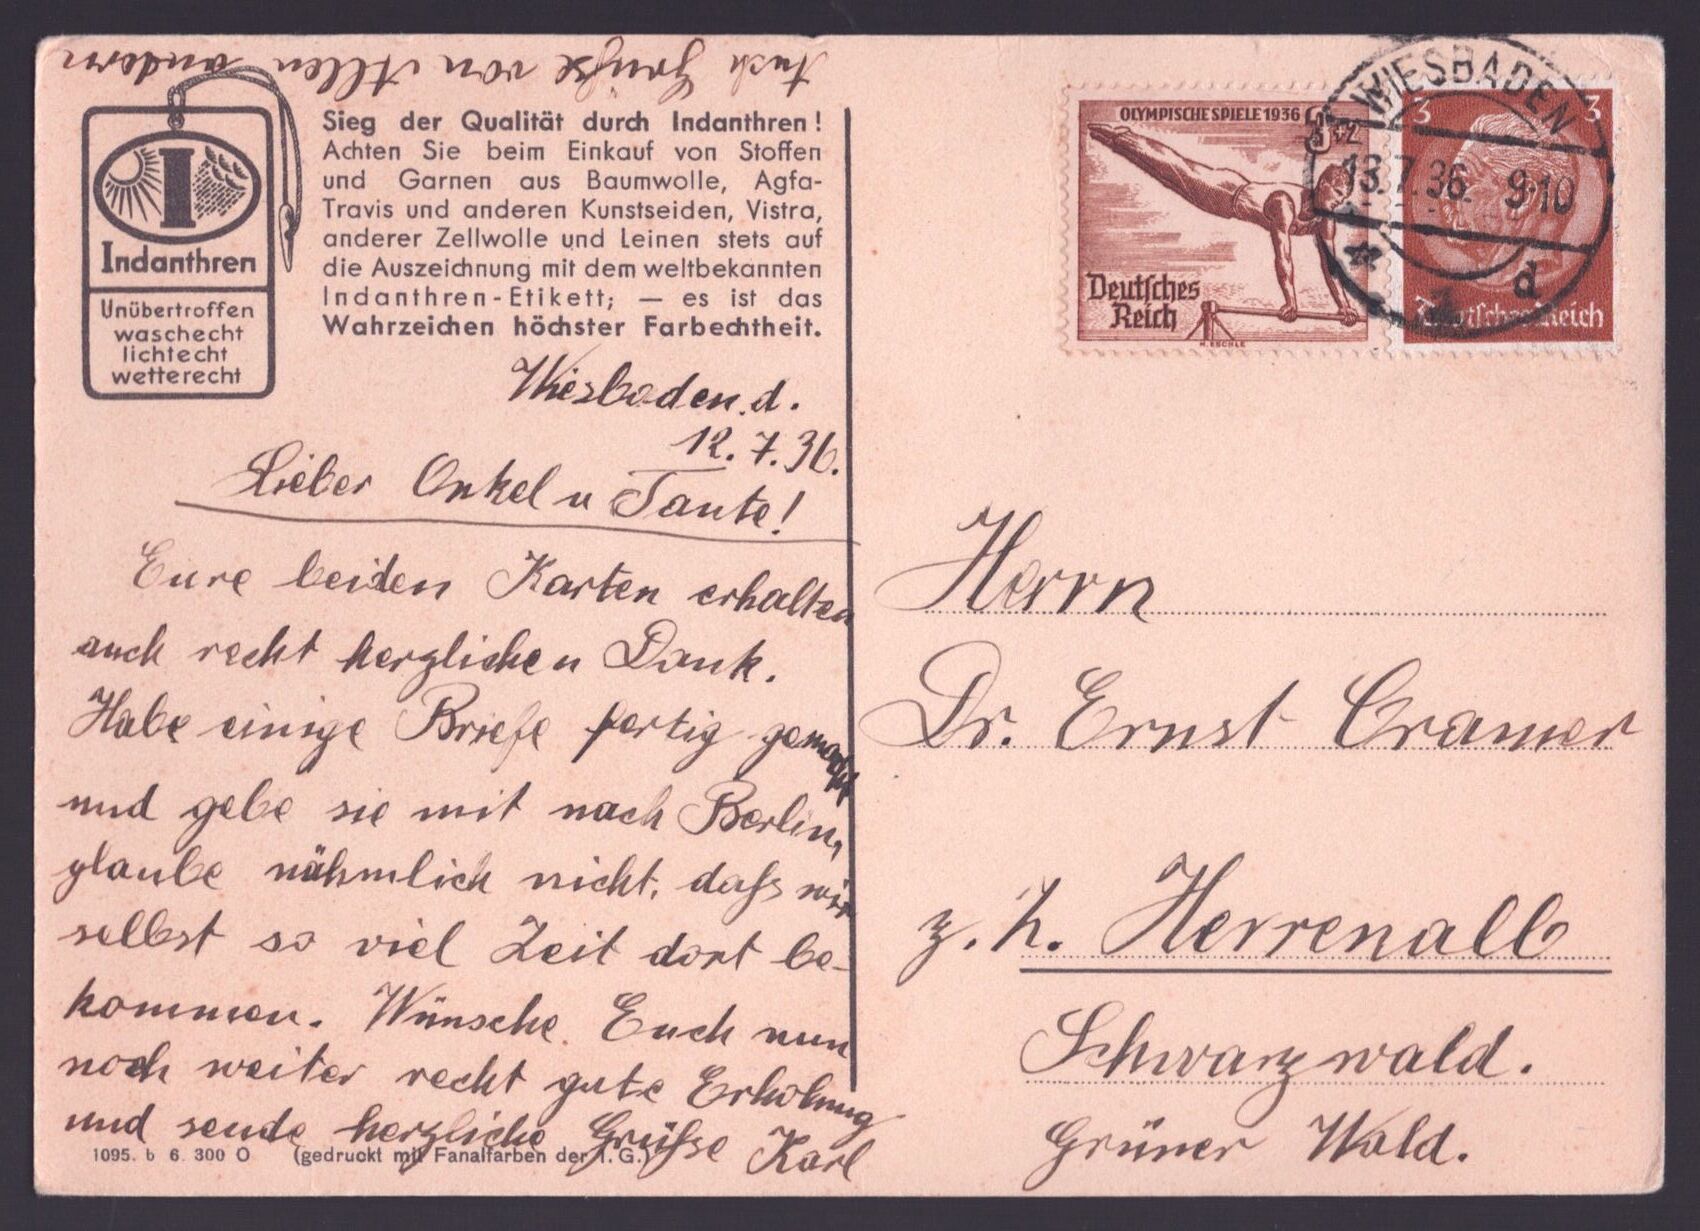 Auch Grüße von Allen andern
Indanthren
Unübertroffen
waschecht
lichtecht
wetterecht
Sieg der Qualität durch Indanthren!
Achten Sie beim Einkauf von Stoffen
und Garnen aus Baumwolle, Agfa-
Travis und anderen Kunstseiden, Vistra,
anderer Zellwolle und Leinen stets auf
die Auszeichnung mit dem weltbekannten
Indanthren-Etikett; — es ist das
Wahrzeichen höchster Farbechtheit.
Wiesbaden. d.
12.7.36.
Lieber Onkel u Tante!
Eure beiden Karten erhalten
auch recht herzlichen Dank.
Habe einige Briefe fertig gemacht
und gebe sie mit nach Berlin,
glaube nähmlich nicht, dafs wir
selbst so viel Zeit dort be-
kommen. Wünsche Euch nun
noch weiter recht gute Erholung
und sende herzliche Grüfse Karl
1095. b 6. 300 O (gedruckt mit Fanalfarben der I.G.)
OLYMPISCHE SPIELE 1936
Deutsches
Reich
H. ESCHLE
WIESBADEN
13.7.36 9-10
d
3 3
Deutsches Reich
Herrn
Dr. Ernst Cramer
z. Z. Herrenalb
Schwarzwald.
Grüner Wald.